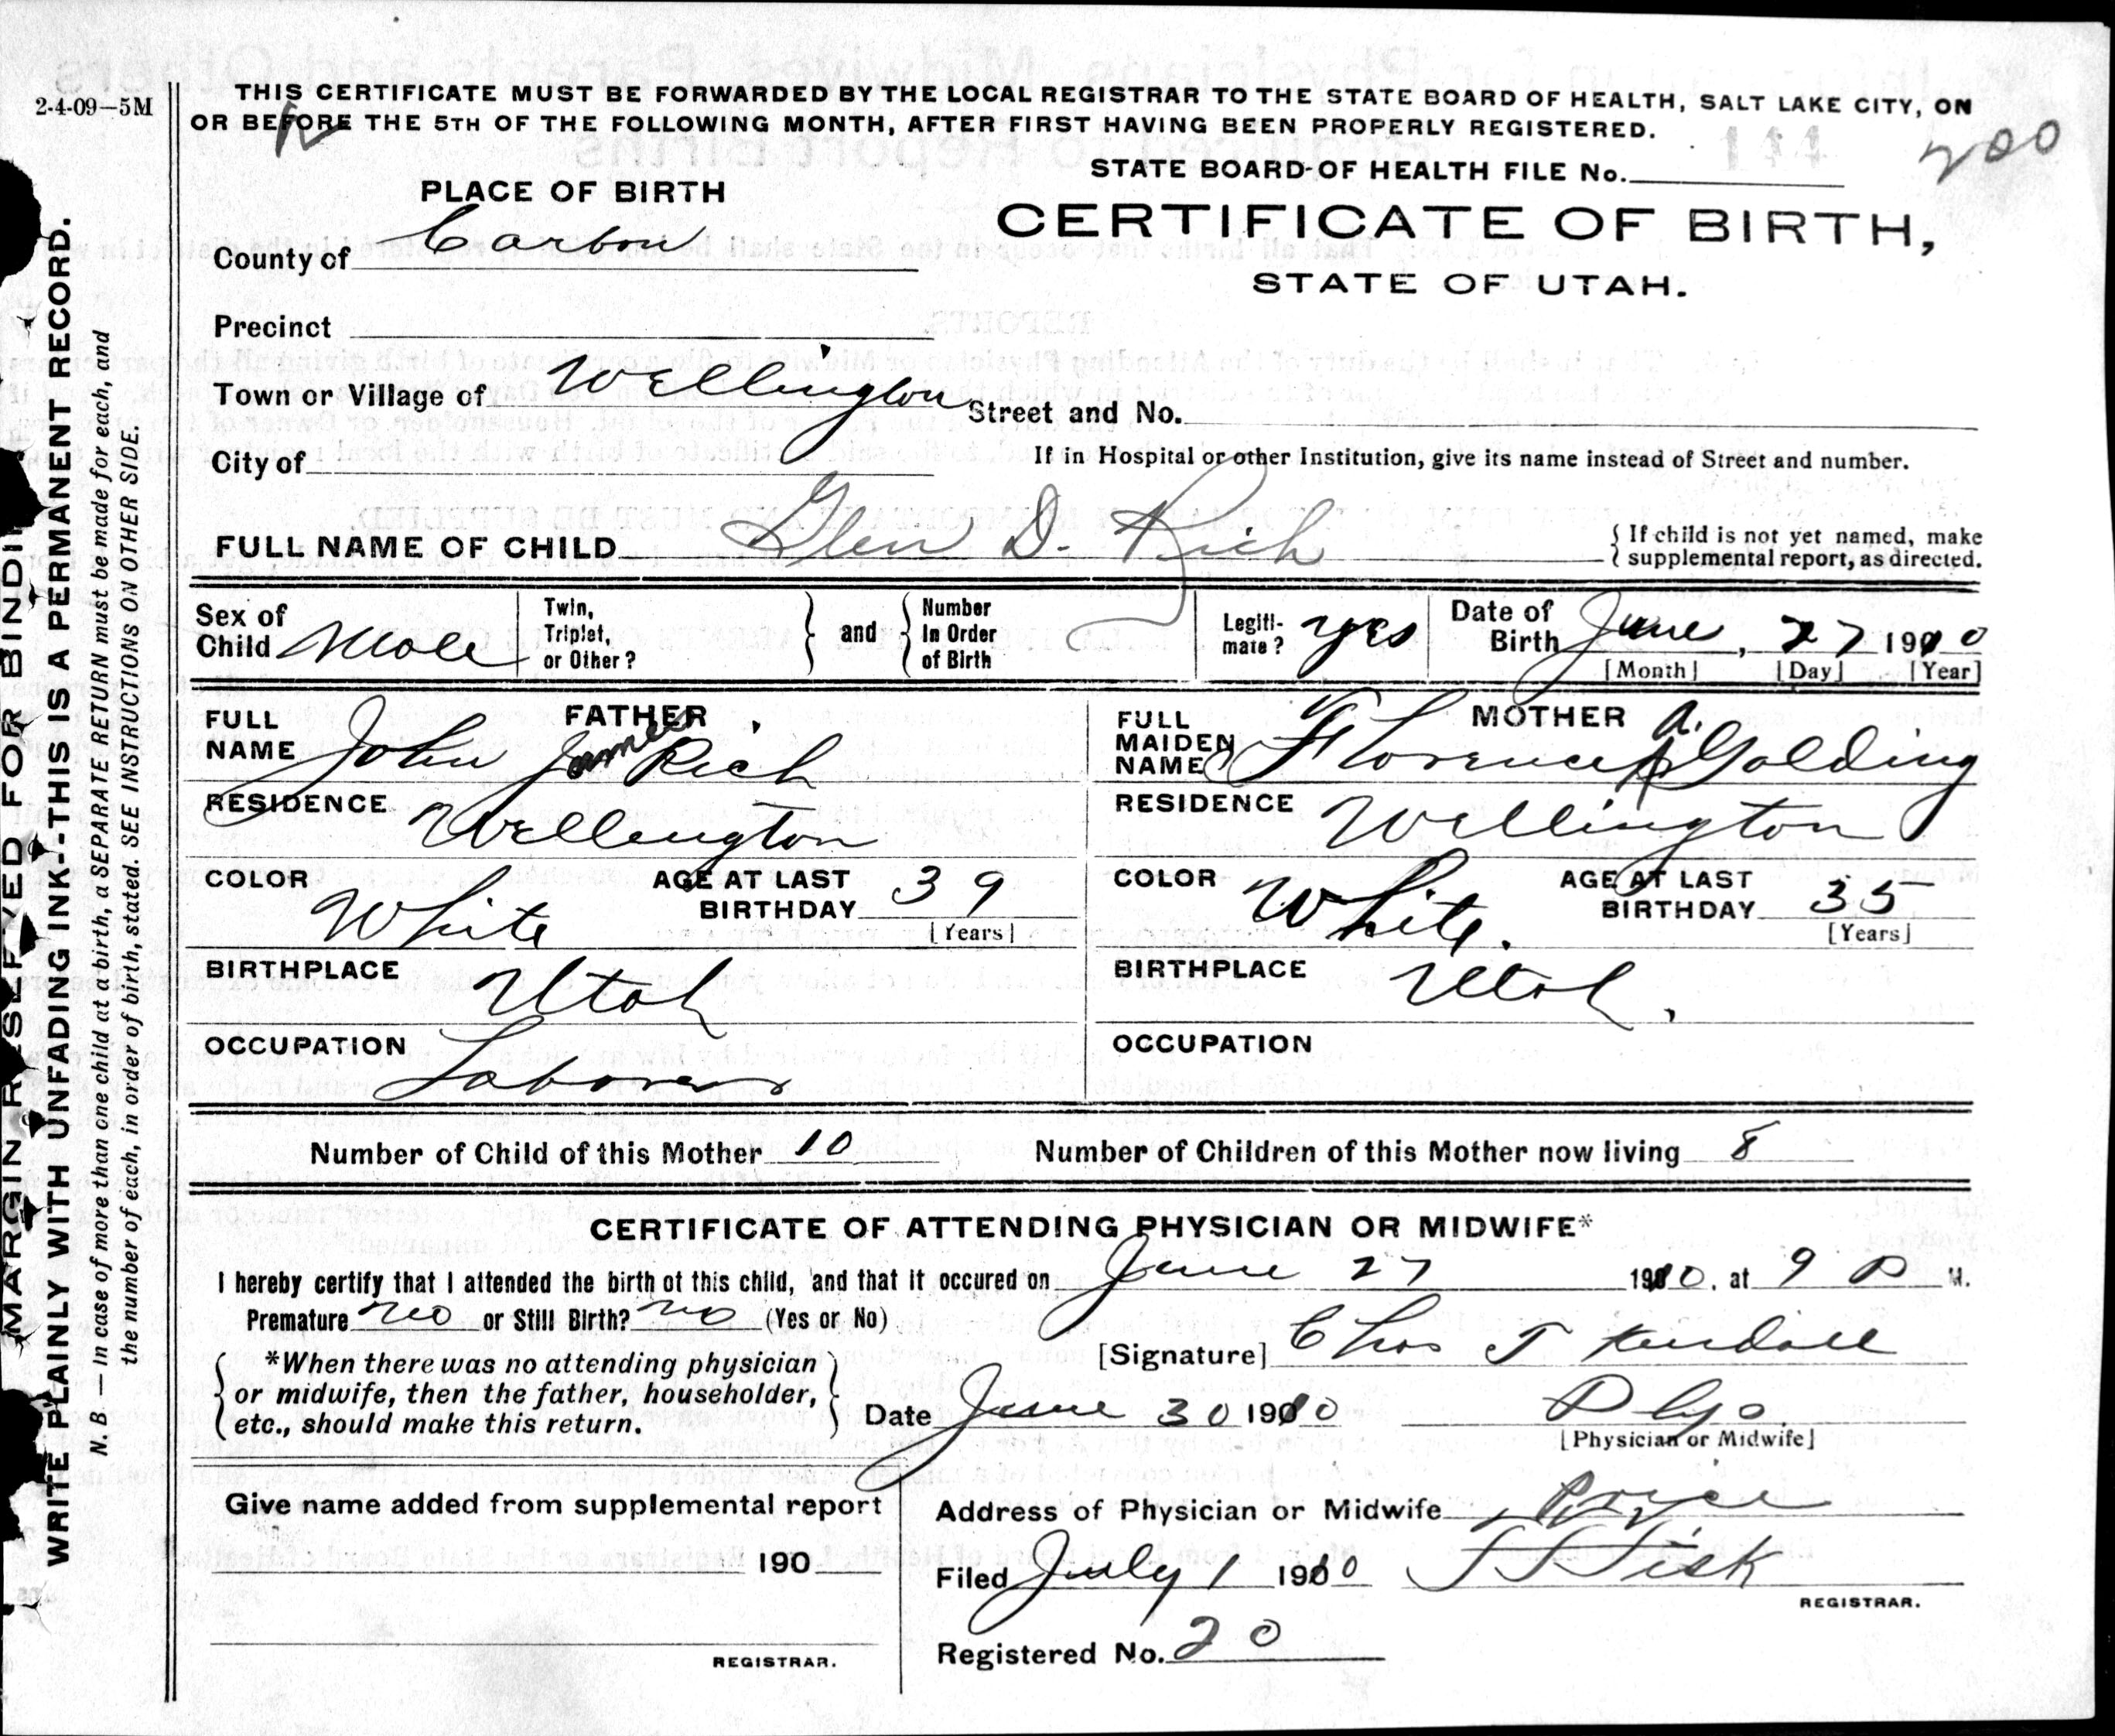 2-4-09—5M
THIS CERTIFICATE MUST BE FORWARDED BY THE LOCAL REGISTRAR TO THE STATE BOARD OF HEALTH, SALT LAKE CITY, ON
OR BEFORE THE 5TH OF THE FOLLOWING MONTH, AFTER FIRST HAVING BEEN PROPERLY REGISTERED.
200
STATE BOARD OF HEALTH FILE No. 111
PLACE OF BIRTH
CERTIFICATE OF BIRTH,
STATE OF UTAH.
County of Carbon
Precinct
Town or Village of Wellington Street and No.
City of If in Hospital or other Institution, give its name instead of Street and number.
FULL NAME OF CHILD Glen D. Rich { If child is not yet named, make
supplemental report, as directed.
Sex of Child Male Twin, Triplet, or Other? } and { Number In Order of Birth Legiti- mate? yes Date of Birth June, 27 1910
[Month] [Day] [Year]
FATHER
FULL NAME John James Rich
RESIDENCE Wellington
COLOR White AGE AT LAST BIRTHDAY 39
[Years]
BIRTHPLACE Utah
OCCUPATION Laborer
MOTHER
FULL MAIDEN NAME Florence A. Golding
RESIDENCE Wellington
COLOR White. AGE AT LAST BIRTHDAY 35
[Years]
BIRTHPLACE Utah.
OCCUPATION
Number of Child of this Mother 10 Number of Children of this Mother now living 8
CERTIFICATE OF ATTENDING PHYSICIAN OR MIDWIFE*
I hereby certify that I attended the birth of this child, and that it occured on June 27 1910, at 9 P M.
Premature no or Still Birth? no (Yes or No)
[Signature] Chas T Kendall
{ *When there was no attending physician
or midwife, then the father, householder,
etc., should make this return. }
Date June 30 1910 Phys.
[Physician or Midwife]
Give name added from supplemental report
190
REGISTRAR.
Address of Physician or Midwife Price
Filed July 1 1910 Fisk
REGISTRAR.
Registered No. 20
MARGIN RESERVED FOR BINDI
WRITE PLAINLY WITH UNFADING INK--THIS IS A PERMANENT RECORD.
N. B — In case of more than one child at a birth, a SEPARATE RETURN must be made for each, and
the number of each, in order of birth, stated. SEE INSTRUCTIONS ON OTHER SIDE.